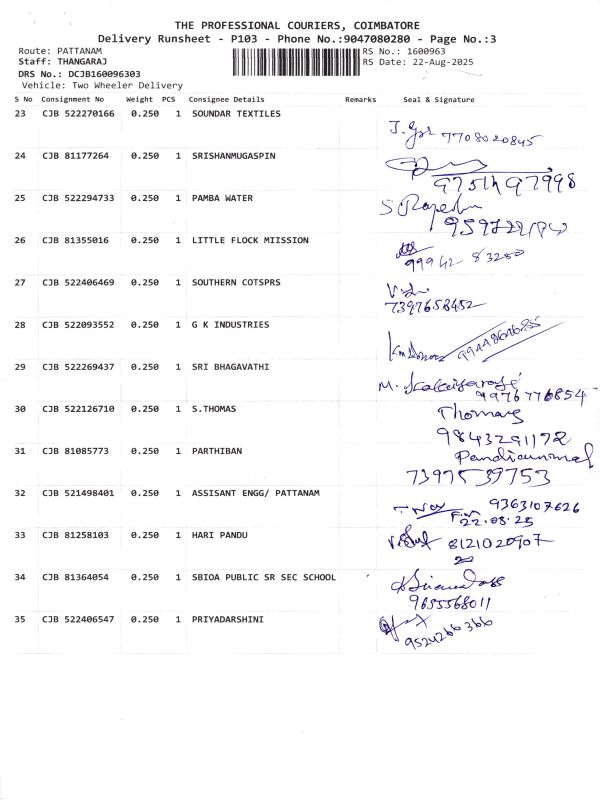 THE PROFESSIONAL COURIERS, COIMBATORE
Delivery Runsheet - P103 - Phone No.:9047080280 - Page No.:3
Route: PATTANAM RS No.: 1600963
Staff: THANGARAJ RS Date: 22-Aug-2025
DRS No.: DCJB160096303
Vehicle: Two Wheeler Delivery
S No Consignment No Weight PCS Consignee Details Remarks Seal & Signature
23 CJB 522270166 0.250 1 SOUNDAR TEXTILES
7708020845
24 CJB 81177264 0.250 1 SRISHANMUGASPIN
25 CJB 522294733 0.250 1 PAMBA WATER
26 CJB 81355016 0.250 1 LITTLE FLOCK MIISSION
99942-83280
27 CJB 522406469 0.250 1 SOUTHERN COTSPRS
7397658452
28 CJB 522093552 0.250 1 G K INDUSTRIES
29 CJB 522269437 0.250 1 SRI BHAGAVATHI
9976776854
30 CJB 522126710 0.250 1 S.THOMAS
Thomas
9843291172
31 CJB 81085773 0.250 1 PARTHIBAN
Pandiammal
7397539753
32 CJB 521498401 0.250 1 ASSISANT ENGG/ PATTANAM
9363107626
22.08.25
33 CJB 81258103 0.250 1 HARI PANDU
8121020907
34 CJB 81364054 0.250 1 SBIOA PUBLIC SR SEC SCHOOL
9655568011
35 CJB 522406547 0.250 1 PRIYADARSHINI
9524266366